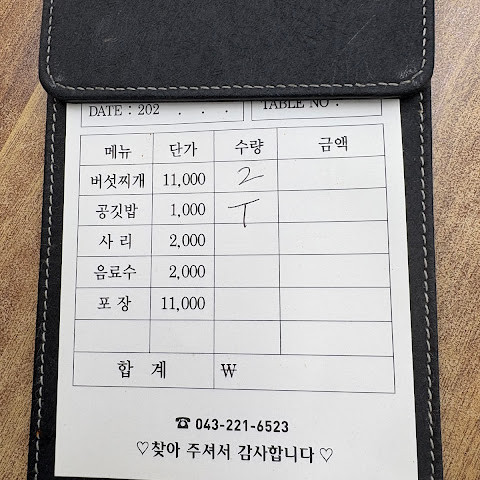 DATE : 202 . . .
TABLE NO :
메뉴 단가 수량 금액
버섯찌개 11,000 2
공깃밥 1,000 T
사 리 2,000
음료수 2,000
포 장 11,000
합 계 ₩
☎ 043-221-6523
♡찾아 주셔서 감사합니다♡